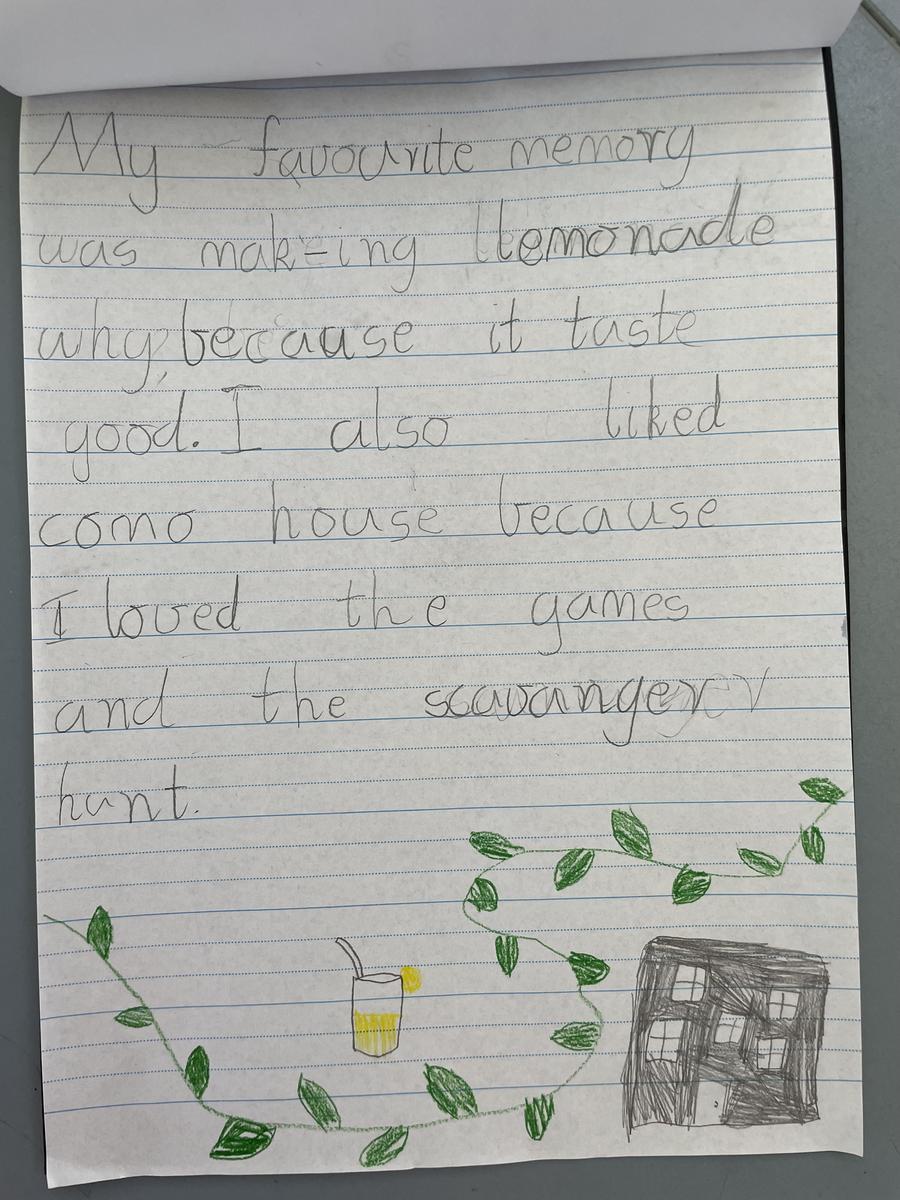 My favourite memory
was mak-ing lemonade
why, because it taste
good. I also liked
como house because
I loved the games
and the scavanger
hunt.